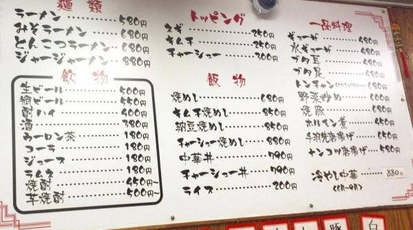 麺類
ラーメン 580円
みそラーメン 680円
とんこつラーメン 680円
ジャージャーメン 880円
飲物
生ビール 500円
瓶ビール 550円
酎ハイ 400円
酒 380円
ウーロン茶 180円
コーラ 180円
ジュース 180円
ラムネ 180円
焼酎 450円
芋焼酎 500円~
トッピング
ネギ 250円
キムチ 250円
チャーシュー 300円
飯物
焼めし 680円
キムチ焼めし 850円
納豆焼めし 850円
チャーシュー焼めし 880円
中華丼 790円
チャーシュー丼 790円
ライス 200円
一品料理
ギョーザ
水ギョーザ 680円
ブタ耳
ブタ足
トンチャン
野菜炒め
焼豚
ホルモン煮
手羽先唐揚げ
ヤンコツ唐揚げ
冷やし中華 880円